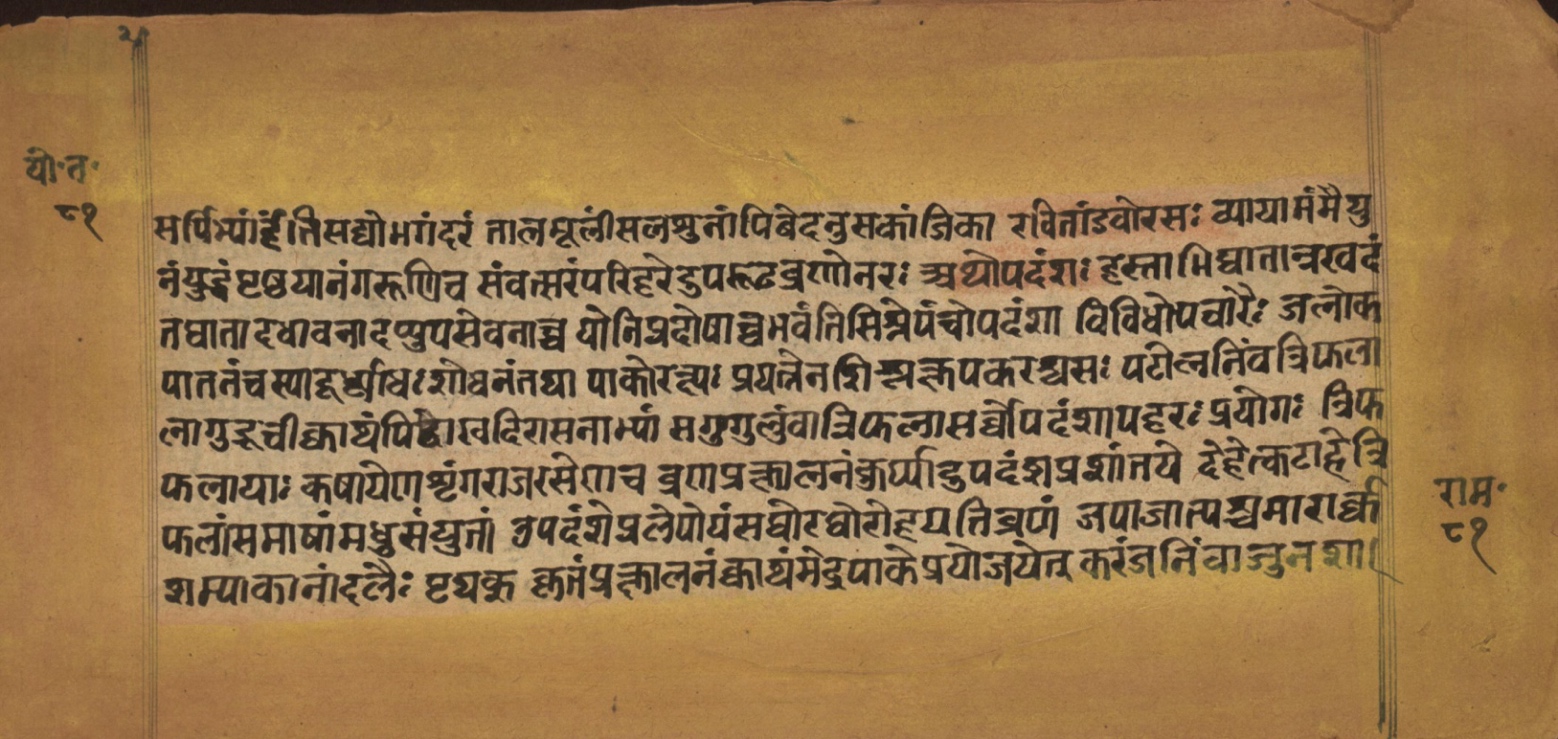 २
यो॰त॰
८१
सर्पिभ्यांर्हंतिसद्योभगंदरं तालमूलींसलशुनांपिबेदनुसकांजिका रवितांडवोरसः व्यायामंमैथु
नंयुद्धंपृष्ठयानंगरूणिच संवत्सरंपरिहरेदुपरूढव्रणोनरः अथोपदंशः हस्ताभिघातान्नखदं
तघातादधावनादप्युपसेवनाच्च योनिप्रदोषाच्चभवंतिसिश्नेपंचोपदंशा विविधोपचारैः जलौक
पातनंचस्यादूर्ध्वाधःशोधनंतथा पाकोरक्ष्यः प्रयत्नेनशिश्नक्षपकरश्चसः पटोलनिंवत्रिफला
लागुडूचीक्वाथंपिवेद्वाखदिरासनाभ्यां सगुग्गुलुंवात्रिफलासर्व्वोपदंशापहरःप्रयोगः त्रिफ
फलायाः कषायेणभृंगराजरसेणच व्रणप्रक्षालनंकुर्य्यादुपदंशप्रशांतये देहेत्कटाहेत्रि
फलांसमाषांमधुसंयुतां उपदंशेप्रलेपोपंसघोरघोरोहयतिव्रणं जपाजात्पश्चमारार्क्क
शम्पाकानांदलैः पृथकु क्तंप्रक्षालनंक्वाथंमेद्रपाकेप्रयोजयेत् करंजनिंवार्जुनशा
राम॰
८१